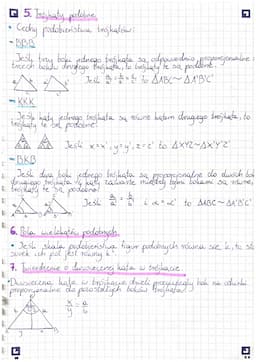 5. Trójkąty podobne.
• Cechy podobieństwa trójkątów:
- BBB
Jeśli trzy boki jednego trójkąta są odpowiednio proporcjonalne do
trzech boków drugiego trójkąta, to trójkąty te są podobne.
Jeśli to ΔABC ~ ΔA'B'C'
- KKK
Jeśli kąty jednego trójkąta są równe kątom drugiego trójkąta, to
trójkąty te są podobne.
Jeśli x=x', y=y', z=z' to ΔXYZ~ΔX'Y'Z'
- BKB
Jeśli dwa boki jednego trójkąta są proporcjonalne do dwóch boków
drugiego trójkąta i kąty zawarte między tymi bokami są równe,
trójkąty te są podobne.
Jeśli i α = α' to ΔABC~ΔA'B'C'
6. Pola wielokątów podobnych.
• Jeśli skala podobieństwa figur podobnych równa się k, to
pól jest równy k².
7. Twierdzenie o dwusiecznej kąta w trójkącie.
• Dwusieczna kąta w trójkącie dzieli przeciwległy bok na odcinki
proporcjonalne do pozostałych boków trójkąta.
x/y = a/b